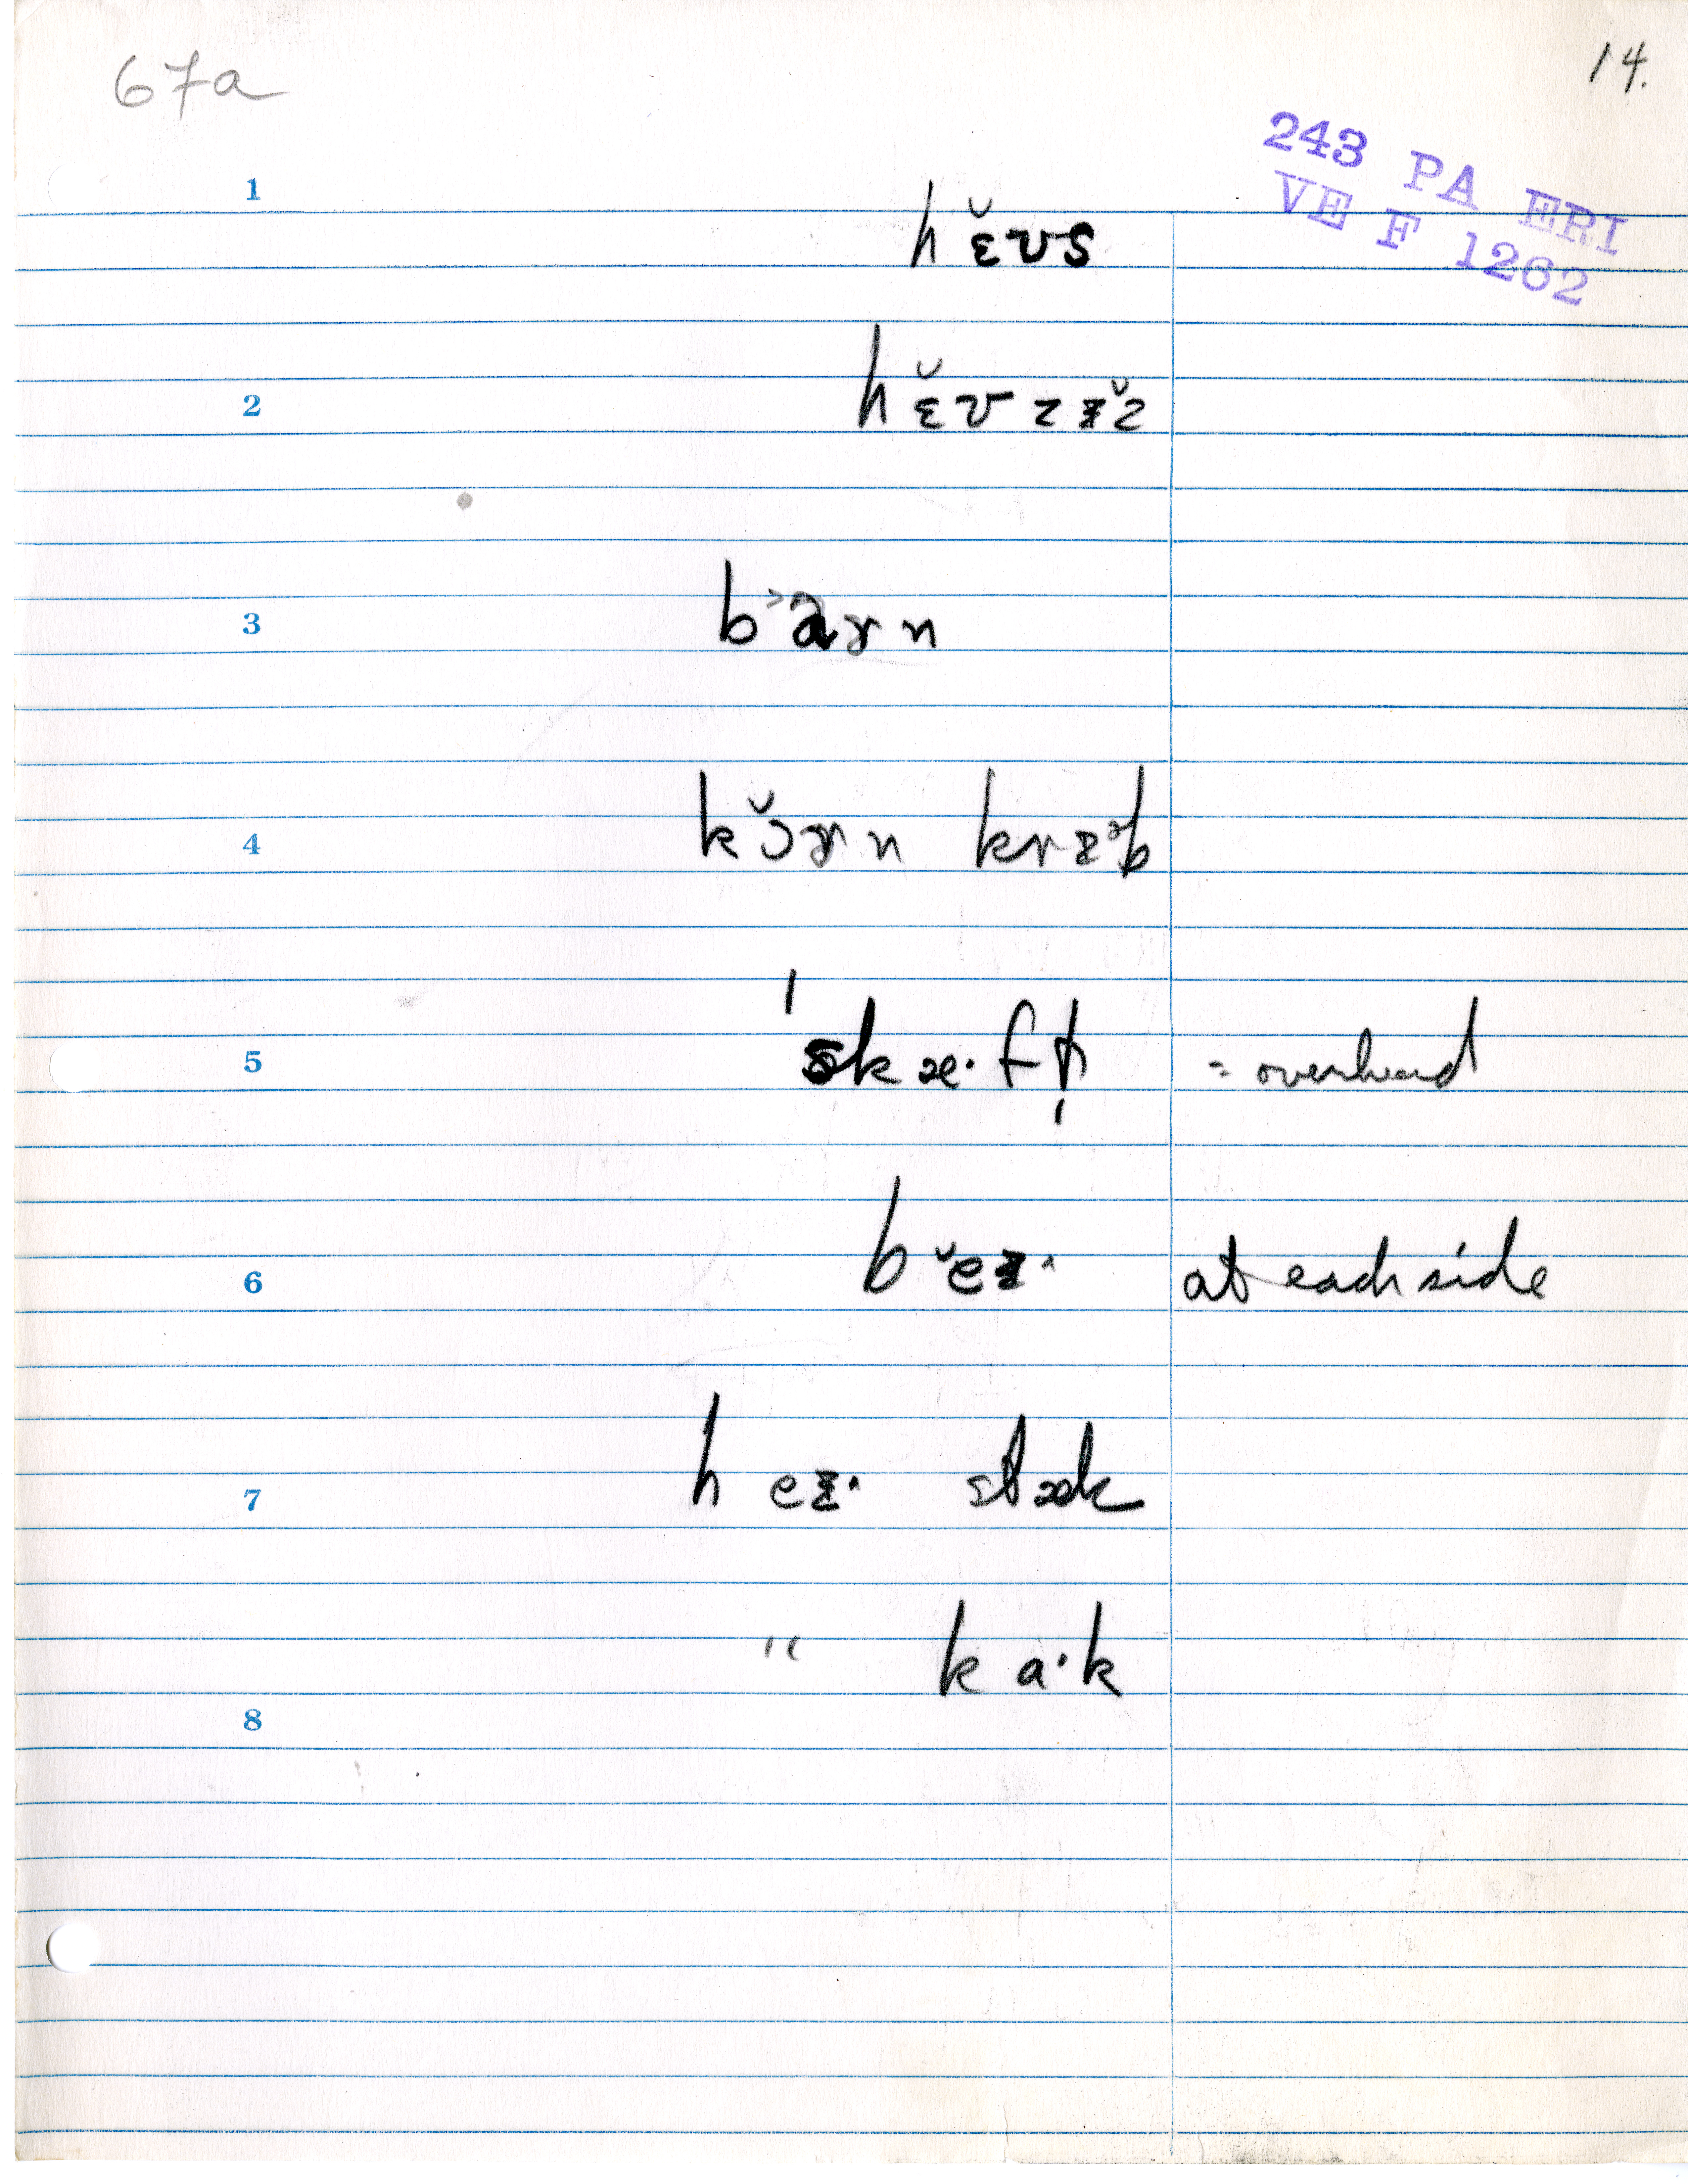 67a
14.
243 PA ERI
VE F 1262
1
hɛ̆ʊs
2
hɛ̆ʊzɪ̆z
3
barn
4
kɔ̆rn krɪb
5
'skæ·fḷ = overhead
6
beɪ· at each side
7
heɪ· stæk
" ka·k
8